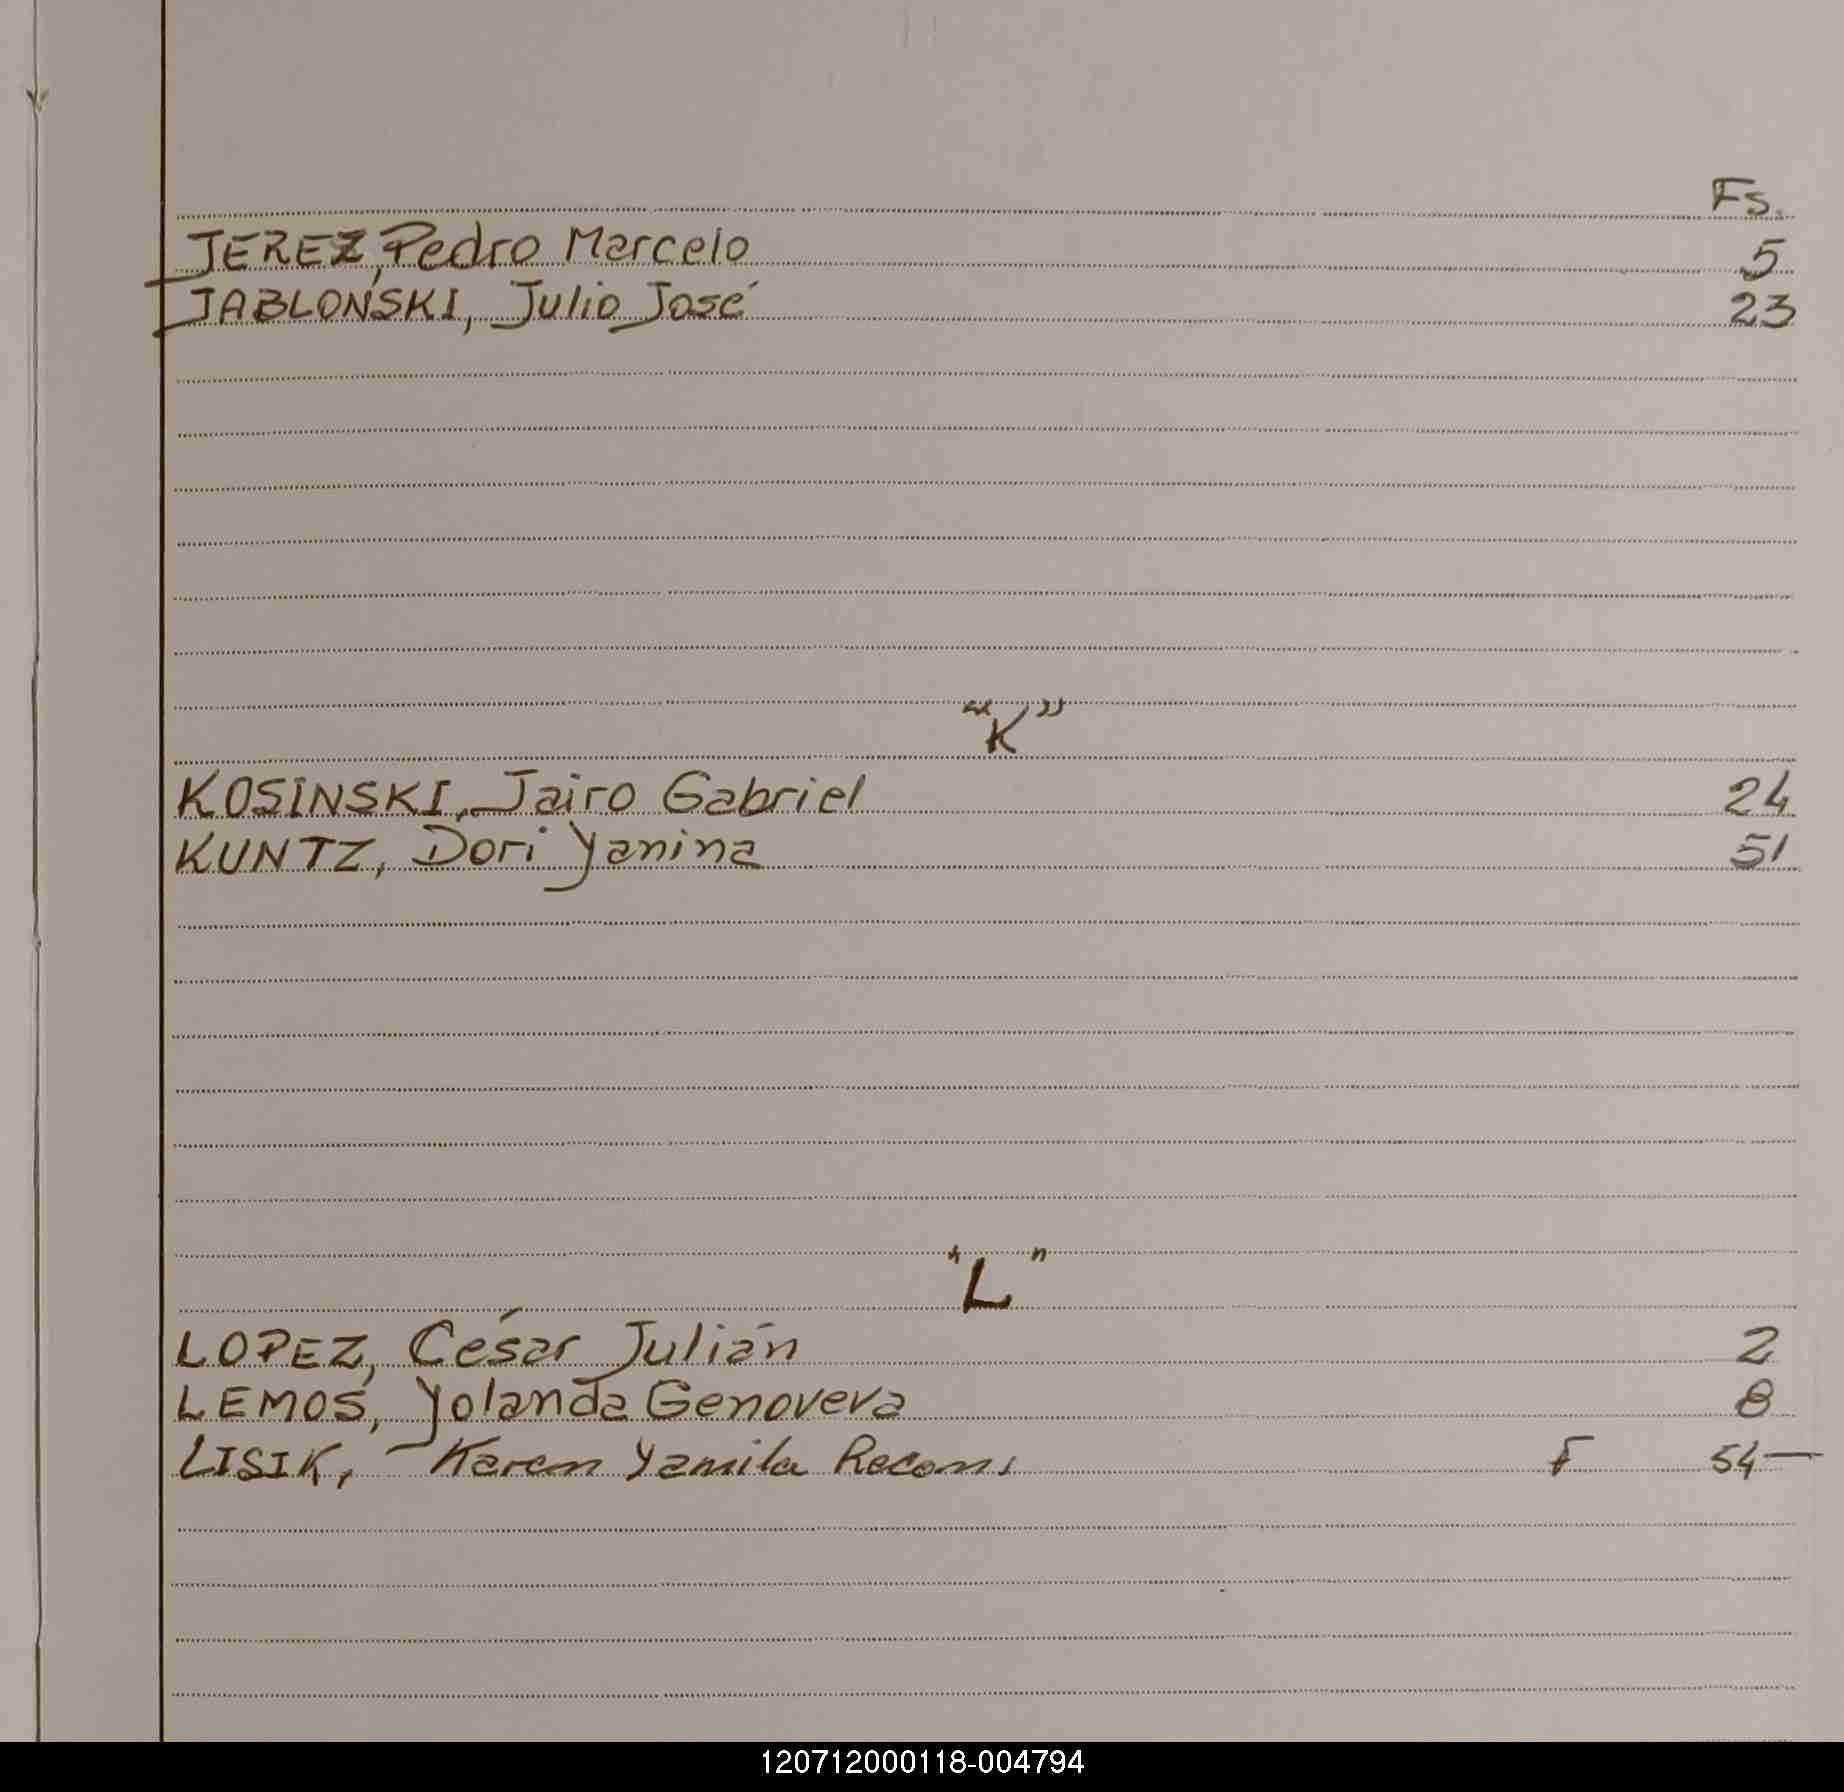 Fs.
JEREZ, Pedro Marcelo 5
JABLOŃSKI, Julio José 23
"K"
KOSINSKI, Jairo Gabriel 24
KUNTZ, Dori Yanina 51
"L"
LOPEZ, César Julián 2
LEMOS, Yolanda Genoveva 8
LISIK, Karen Yamila F 54
120712000118-004794